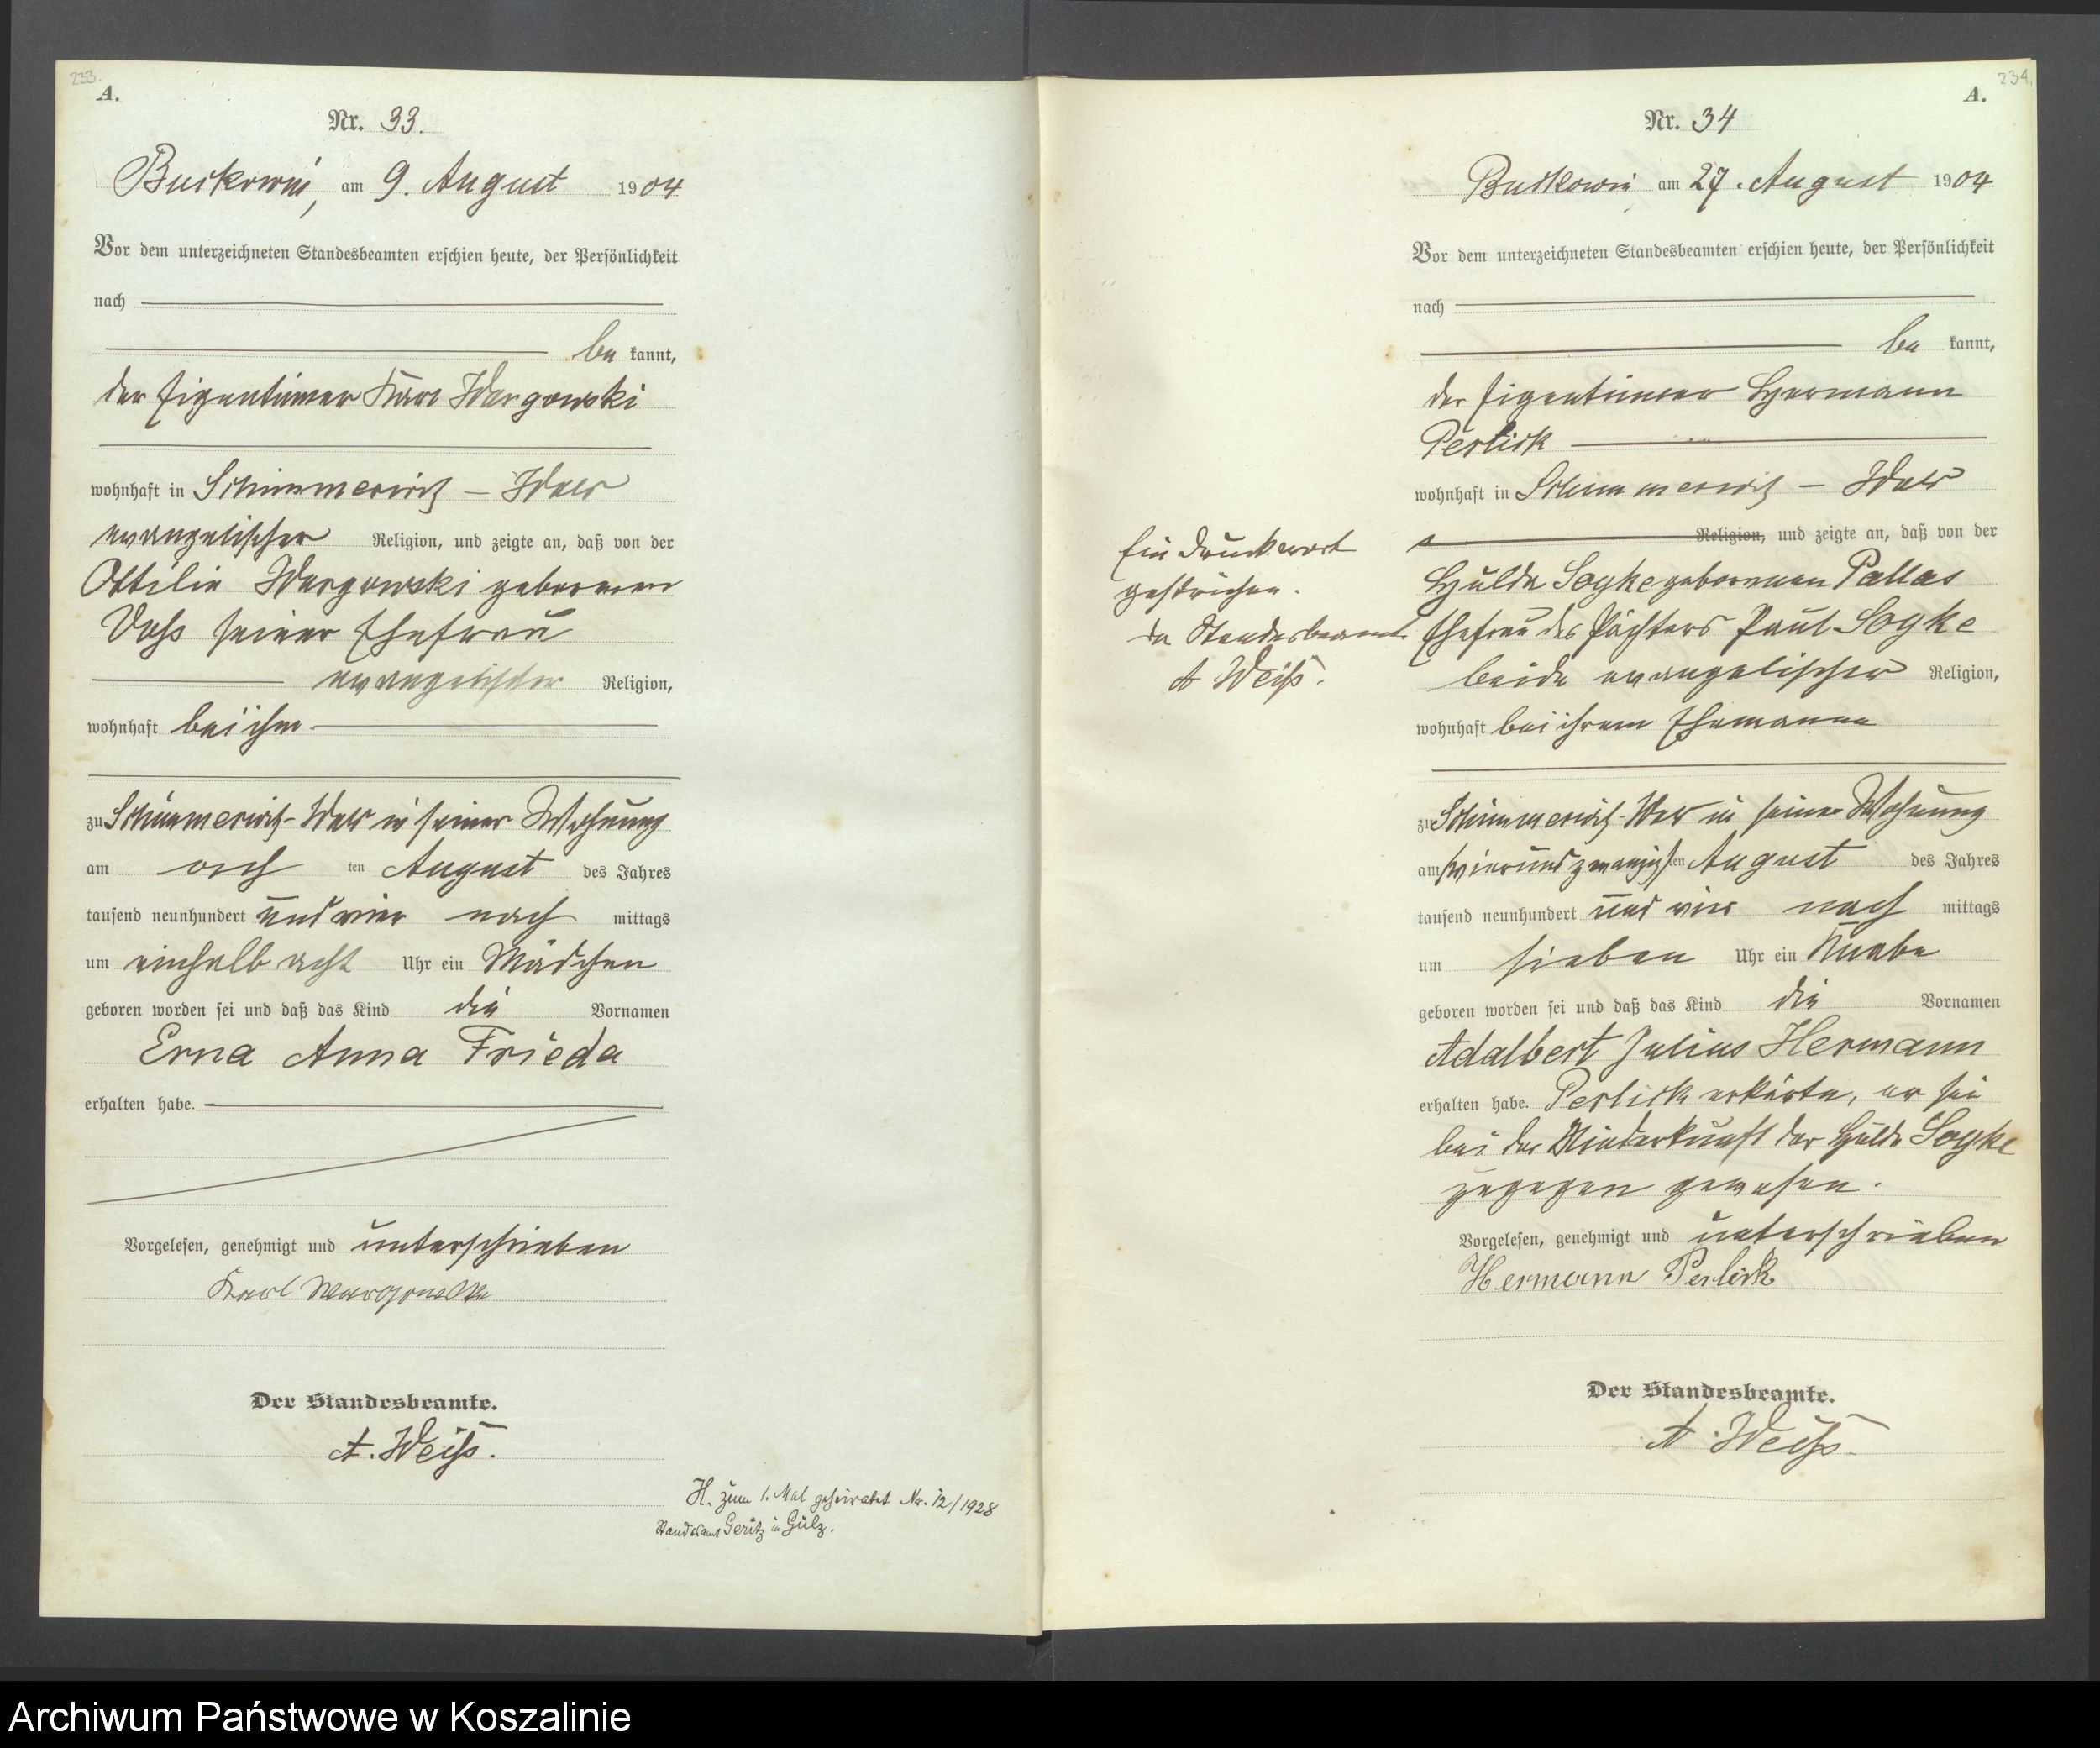 233.
A.
Nr. 33.
Buckowin, am 9. August 1904
Vor dem unterzeichneten Standesbeamten erschien heute, der Persönlichkeit
nach
be kannt,
der Eigentümer Karl Wargowski
wohnhaft in Schimmerwitz – Wald
evangelischer Religion, und zeigte an, daß von der
Ottilie Wargowski geborenen
Voss seiner Ehefrau
evangelischer Religion,
wohnhaft bei ihm
zu Schimmerwitz-Wald in seiner Wohnung
am acht ten August des Jahres
tausend neunhundert und vier nach mittags
um einhalb acht Uhr ein Mädchen
geboren worden sei und daß das Kind die Vornamen
Erna Anna Frieda
erhalten habe.
Vorgelesen, genehmigt und unterschrieben
Karl Wargowski
Der Standesbeamte.
A. Weiß.
H. zum 1. Mal geheiratet Nr. 12/1928
Standesamt Geritz in Gülz.
234.
A.
Nr. 34
Buckowin am 27. August 1904
Vor dem unterzeichneten Standesbeamten erschien heute, der Persönlichkeit
nach
be kannt,
der Eigentümer Hermann
Perlick
wohnhaft in Schimmerwitz – Wald
Religion, und zeigte an, daß von der
Hulda Sogke geborenen Pallas
Ehefrau des Pächters Paul Sogke
beide evangelischer Religion,
wohnhaft bei ihrem Ehemanne
zu Schimmerwitz-Wald in seiner Wohnung
am vierundzwanzigsten August des Jahres
tausend neunhundert und vier nach mittags
um sieben Uhr ein Knabe
geboren worden sei und daß das Kind die Vornamen
Adalbert Julius Hermann
erhalten habe. Perlick erklärte, er sei
bei der Niederkunft der Hulda Sogke
zugegen gewesen.
Vorgelesen, genehmigt und unterschrieben
Hermann Perlick
Der Standesbeamte.
A. Weiß.
Ein Druckwort
gestrichen.
Der Standesbeamte
A Weiß.
Archiwum Państwowe w Koszalinie